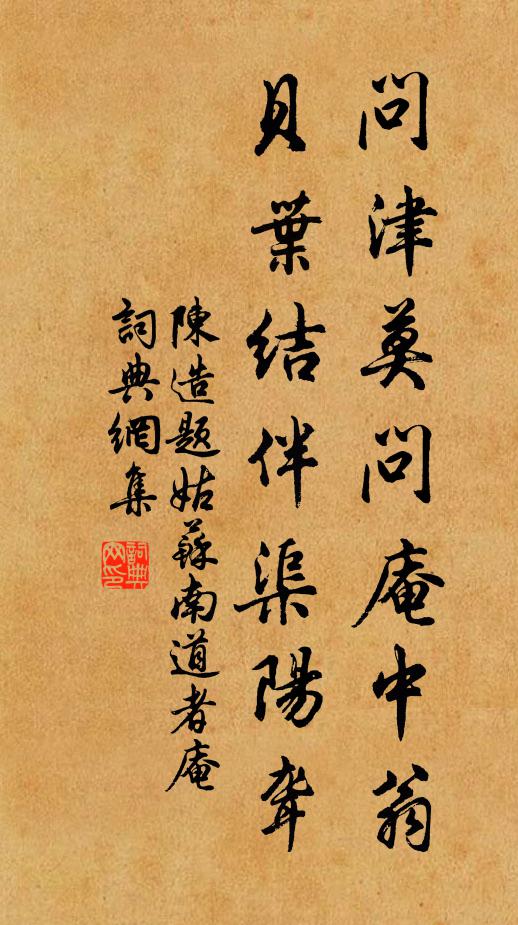 問津莫問庵中翁
貝葉結伴渠陽聋
陳造題姑蘇南道者庵
詞典網集
詞典
网印